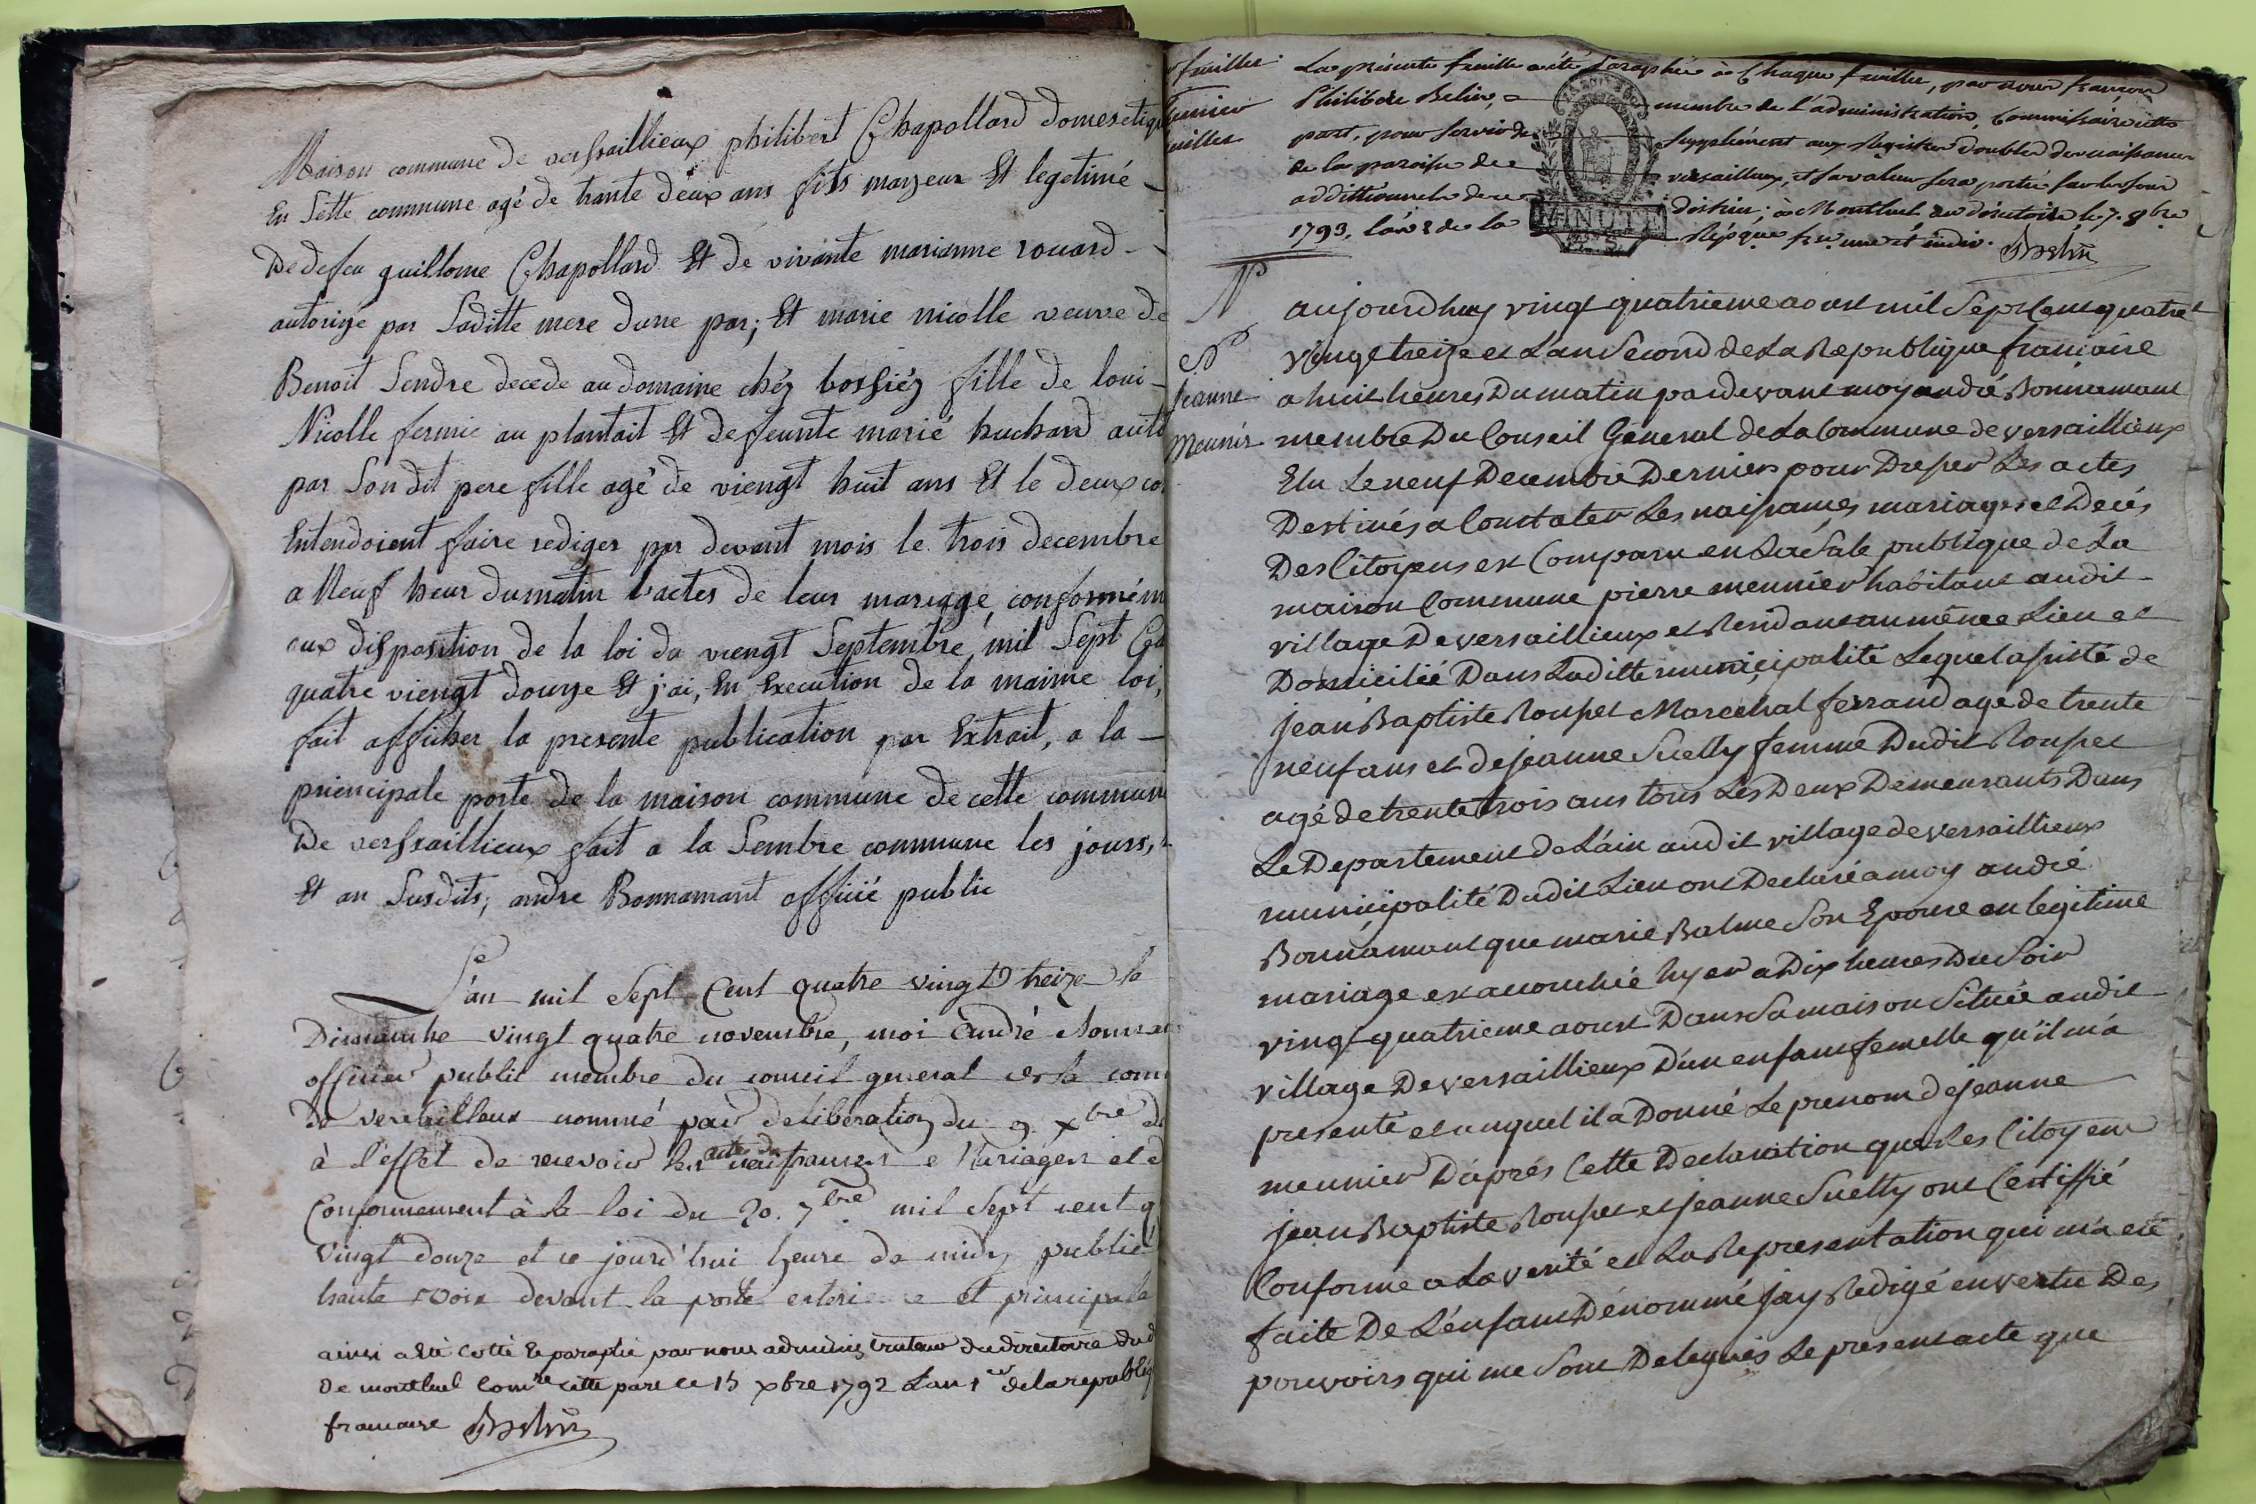 Maison commune de versaillieux philibert Chapollard domestiq
En Sette commune agé de trante deux ans fils mayeur Et legetimé
De defeu guillome Chapollard Et de vivante marianne rouard
autorizé par Saditte mere dune par; Et marie nicolle veuve de
Benoit Sendre decede au domaine chéz bossiéz fille de loui
Nicolle fermie au plantait Et defeunte marié huchard auto
par Son dit pere fille agé de viengt huit ans Et le deux co
Entendoient faire rediger par devant mois le trois decembre
a Neuf heur dumatin l'actes de leur mariage, conformém
aux disposition de la loi du viengt Septembre mil Sept Cen
quatre viengt douze Et j'ai, En Execution de la maime loi,
fait afficher la presente publication par Extrait, a la
priencipale porte de la maison commune de cette commun
De versraillieux fait a la Sembre commune les jours,
Et an Susdits, andre Bonnamant officié public
L'an mil Sept Cent quatre vingt treize le
Dimanche vingt quatre novembre, moi André Bonna
officier public membre du conseil general de la com
de versailleux nommé par deliberation du 9 xbre d
à l'effet de recevoir les actes de naissances e Mariages et d
Conformement à la loi du 20. 7bre mil Sept cent q
vingt douze et ce jourd'hui heure de midy publié
haute voix devant la porte exterieure et principale
ainsi a été cotté et paraphé par nous administrateur du directoire du d
De montluel Comre cette part ce 15 xbre 1792 Lan 1er de la republiq
francaise Belin
feuillet
La présente feuille a été paraphée à Chaque feuillet, par nous françois
Philibert Belin, membre de l'administration, Commissaire cette
part, pour servir de Supplément aux Registres doubles de naissances
de la paroisse de versailleux, et sa valeur sera portée sur les sous
additionnels de ce district; à Montluel au directoire le 7. 8bre
1793, l'an 2 de la Répque fse une et indiv. Belin
MINUTE
N
Jeanne
Meunier
aujourdhuy vingt quatrieme aoust mil Sept Cent quatre
vingt treize et L'an Second de La Republique francaise
a huit heures Du matin pardevant moy andré Bonnamant
membre Du Conseil Géneral de La Commune de versaillieux
Elu Le neuf Decembre Dernier pour Dresser Les actes
Destinés a Constater Les naissances mariages et Decés
Des Citoyens est Comparu en La Sale publique de La
maison Commune pierre meunier habitant audit
village De versaillieux et Residant au même Lieu et
Domicilié Dans Laditte municipalité Lequel assisté de
jean Baptiste Rousset Marechal ferrand agé de trente
neuf ans et de jeanne Suetty femme Dudit Rousset
agé de trente trois ans tous Les Deux Demeurants Dans
Le Departement de L'ain audit village de versaillieux
municipalité Dudit Lieu ont Declaré a moy andré
Bonnamant que marie Balme Son Epouse en legitime
mariage est accouchée hyer a Dix heures Du Soir
vingt quatrieme aoust Dans Sa maison Située audit
village De versaillieux D'un enfant femelle qu'il m'a
presenté et auquel il a Donné Le prenom de jeanne
meunier D'aprés Cette Declaration que Les Citoyens
jean Baptiste Rousset et jeanne Suetty ont Certiffié
Conforme a La verité et La Representation qui m'a eté
faite De L'enfant Dénommé j'ay Redigé en vertu Des
pouvoirs qui me Sont Delegués Le present acte que